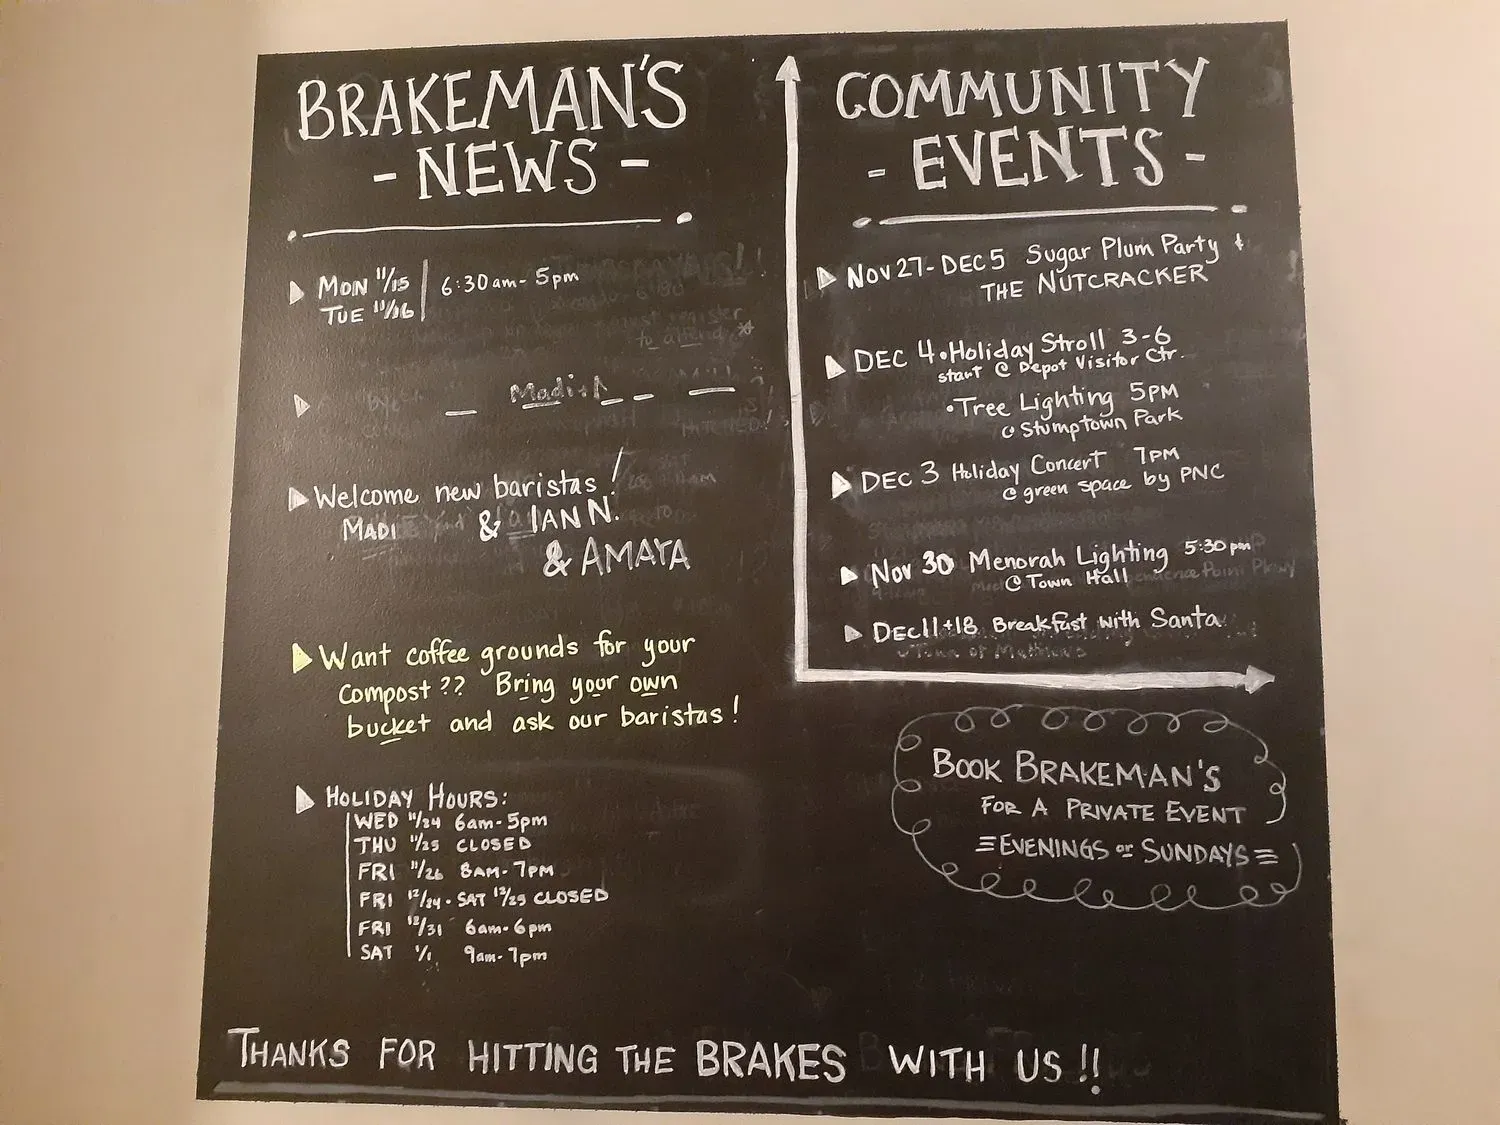 BRAKEMAN'S
- NEWS -
MON 11/15
TUE 11/16
6:30am - 5pm
Madi+
Welcome new baristas!
MADI & IAN N.
& AMAYA
Want coffee grounds for your
compost?? Bring your own
bucket and ask our baristas!
HOLIDAY HOURS:
WED 11/24 6am-5pm
THU 11/25 CLOSED
FRI 11/26 8AM-7PM
FRI 12/24 - SAT 12/25 CLOSED
FRI 12/31 6am-6pm
SAT 1/1 9am-7pm
COMMUNITY
- EVENTS -
NOV 27 - DEC 5 Sugar Plum Party &
THE NUTCRACKER
DEC 4 • Holiday Stroll 3-6
start @ Depot Visitor Ctr.
• Tree Lighting 5PM
@ Stumptown Park
DEC 3 Holiday Concert 7PM
@ green space by PNC
Nov 30 Menorah Lighting 5:30pm
@ Town Hall
DEC 11+18 Breakfast with Santa
BOOK BRAKEMAN'S
FOR A PRIVATE EVENT
EVENINGS or SUNDAYS
THANKS FOR HITTING THE BRAKES WITH US!!